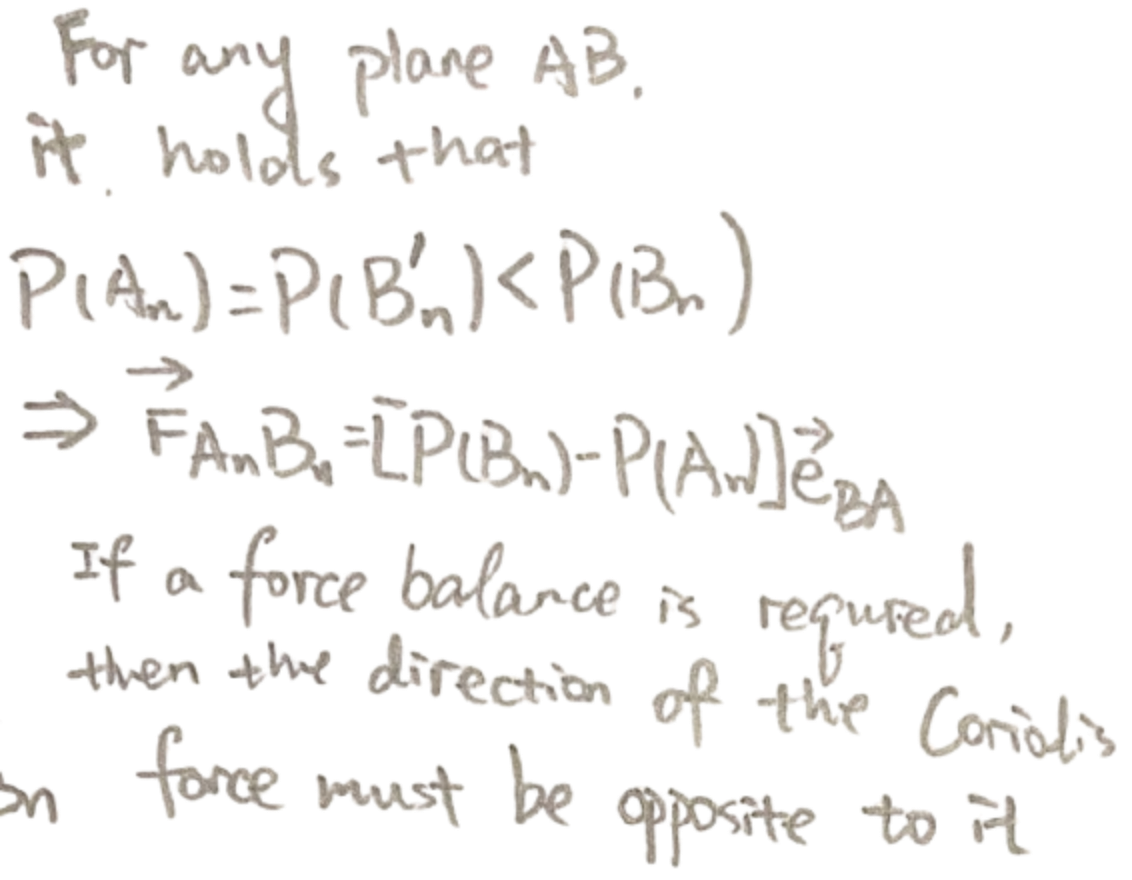 For any plane AB.
it. holds that
P(Aₙ)=P(B'ₙ)<P(Bₙ)
⇒ F⃗AₙBₙ=[P(Bₙ)-P(Aₙ)]e⃗BA
If a force balance is requred,
then the direction of the Coriolis
force must be opposite to it